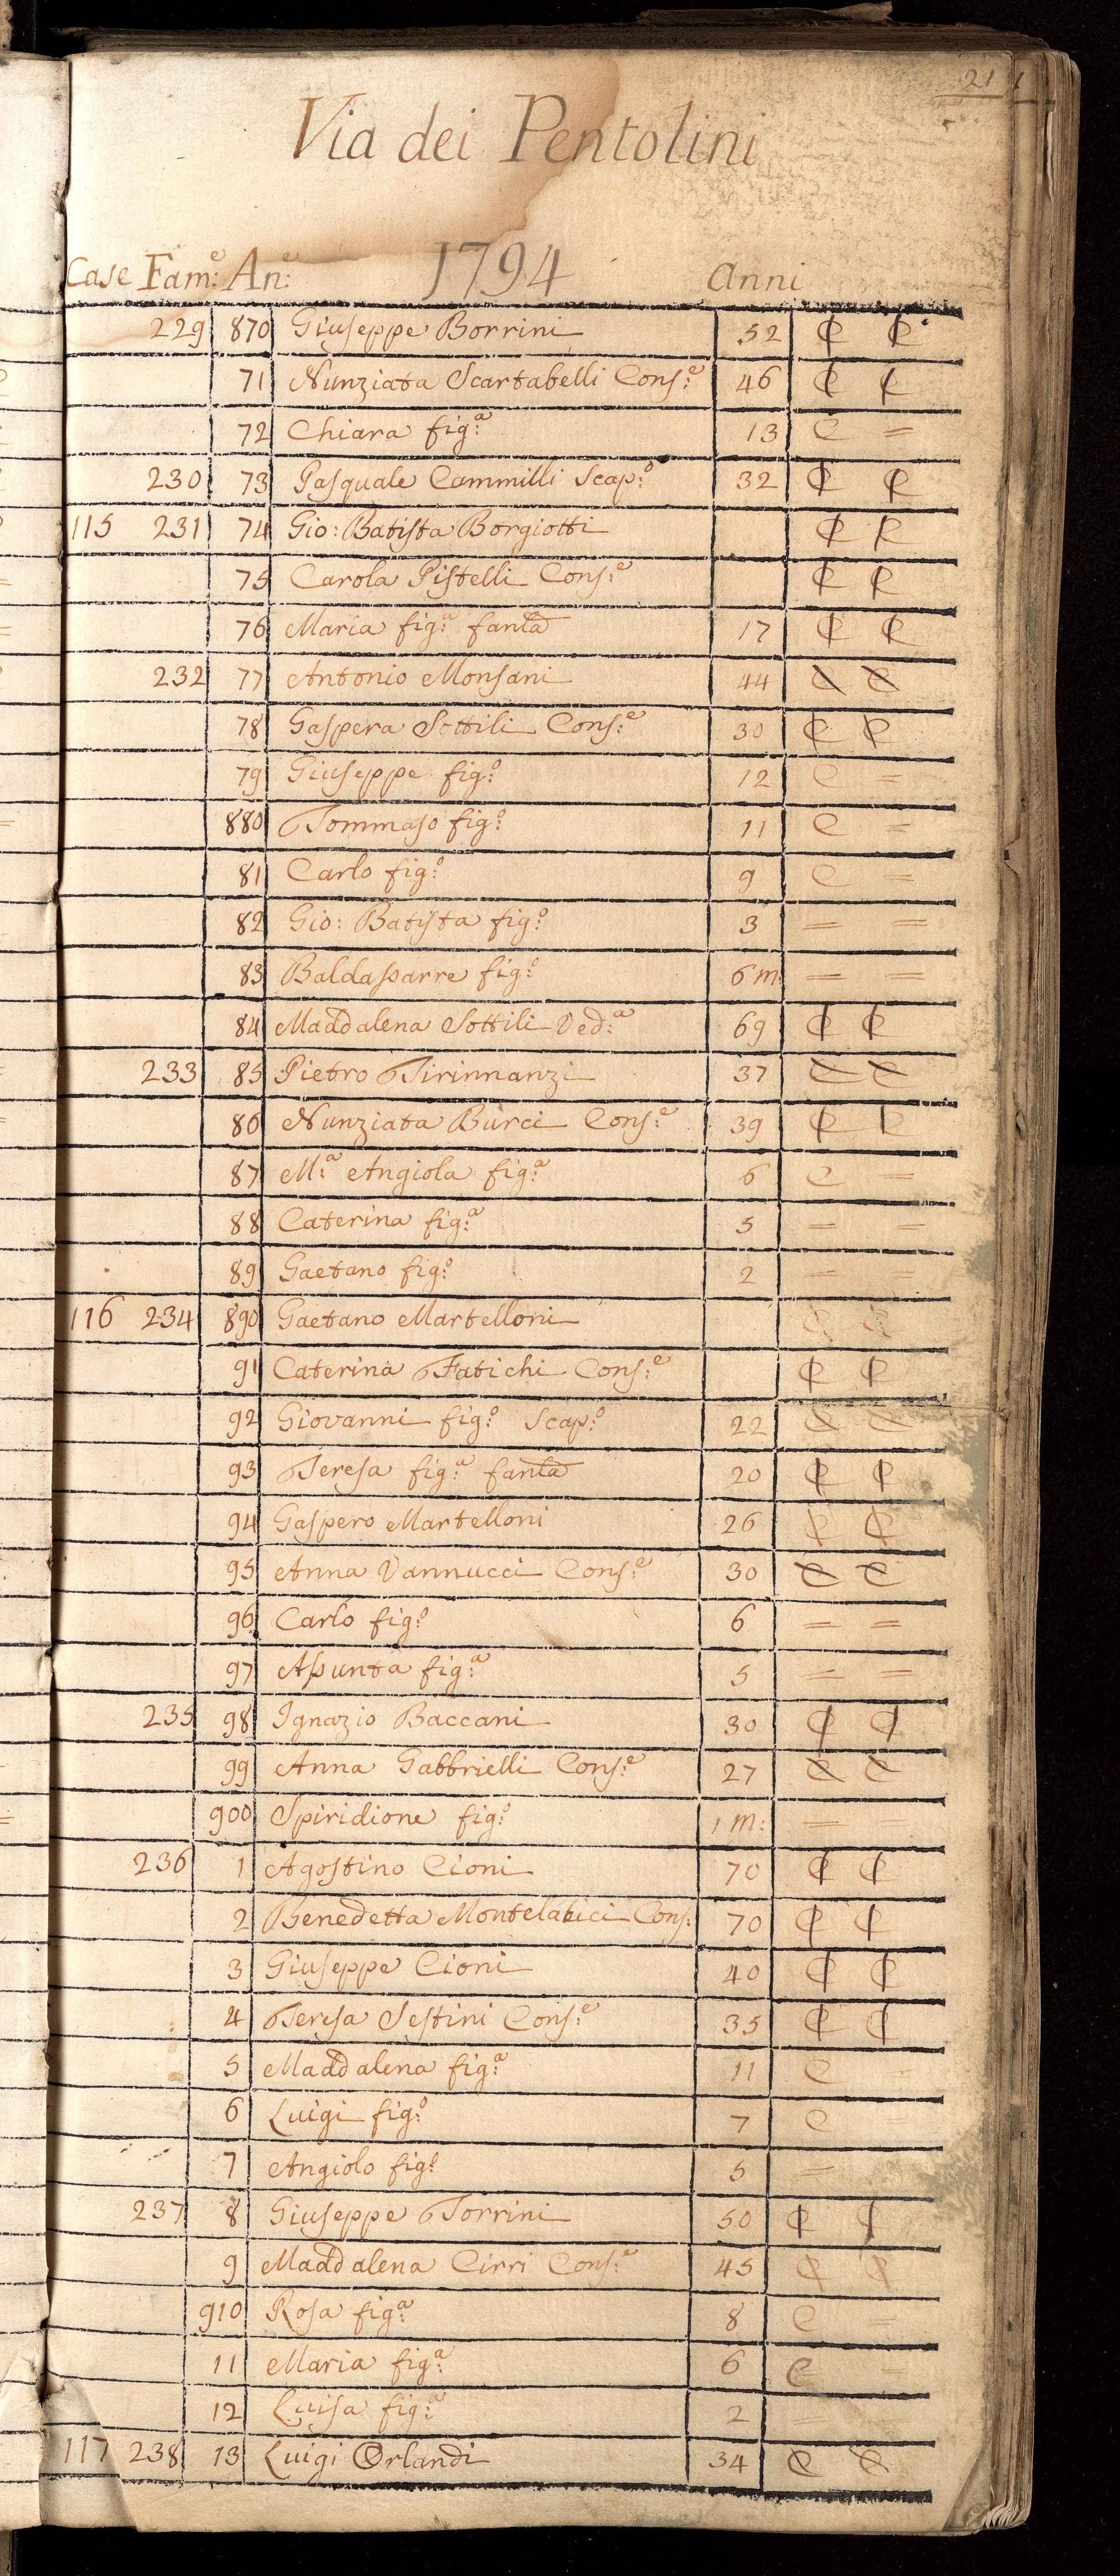 21
Via dei Pentolini
Case Fam:e An:e 1794 Anni
229 870 Giuseppe Borrini 52 C C
71 Nunziata Scartabelli Cons:e 46 C C
72 Chiara fig:a 13 C =
230 73 Pasquale Cammilli Scap:o 32 C C
115 231 74 Gio: Batista Borgiotti C C
75 Carola Pistelli Cons:e C C
76 Maria fig:a fanla 17 C C
232 77 Antonio Monsani 44 C C
78 Gaspera Sottili Cons:e 30 C C
79 Giuseppe fig:o 12 C =
880 Tommaso fig:o 11 C =
81 Carlo fig:o 9 C =
82 Gio: Batista fig:o 3 = =
83 Baldassarre fig:o 6 m: = =
84 Maddalena Sottili Ved:a 69 C C
233 85 Pietro Tirinnanzi 37 C C
86 Nunziata Burci Cons:e 39 C C
87 M:a Angiola fig:a 6 C =
88 Caterina fig:a 5 = =
89 Gaetano fig:o 2 = =
116 234 890 Gaetano Martelloni C C
91 Caterina Fatichi Cons:e C C
92 Giovanni fig:o Scap:o 22 C C
93 Teresa fig:a fanla 20 C C
94 Gaspero Martelloni 26 C C
95 Anna Vannucci Cons:e 30 C C
96 Carlo fig:o 6 = =
97 Assunta fig:a 5 = =
235 98 Ignazio Baccani 30 C C
99 Anna Gabbrielli Cons:e 27 C C
900 Spiridione fig:o 1 m: =
236 1 Agostino Cioni 70 C C
2 Benedetta Montelatici Cons: 70 C C
3 Giuseppe Cioni 40 C C
4 Teresa Sestini Cons:e 35 C C
5 Maddalena fig:a 11 C
6 Luigi fig:o 7 C =
7 Angiolo fig:o 5 =
237 8 Giuseppe Torrini 50 C C
9 Maddalena Cirri Cons:e 45 C C
910 Rosa fig:a 8 C =
11 Maria fig:a 6 C
12 Luisa fig:a 2
117 238 13 Luigi Orlandi 34 C C